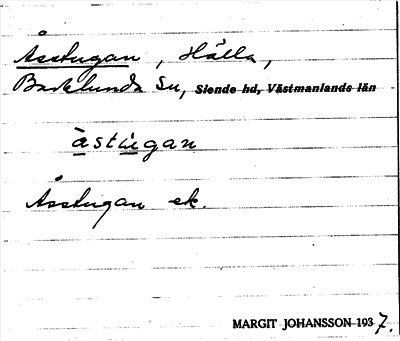 Åsstugan, Hälla,
Barklunda Sn, Siende hd, Västmanlands län
àstùgan
Åsstugan ek.
MARGIT JOHANSSON 1937.